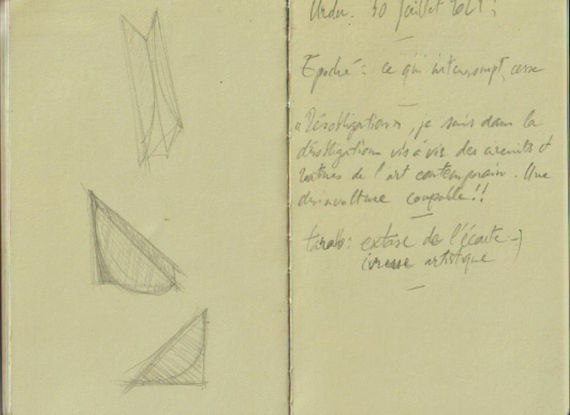 30 juillet
Epoché : ce qui interrompt, cesse
« Désobligation », je suis dans la
désobligation vis à vis des circuits et
de l'art contemporain. Une
désinvolture coupable !!
tarab : extase de l'écoute
ivresse artistique